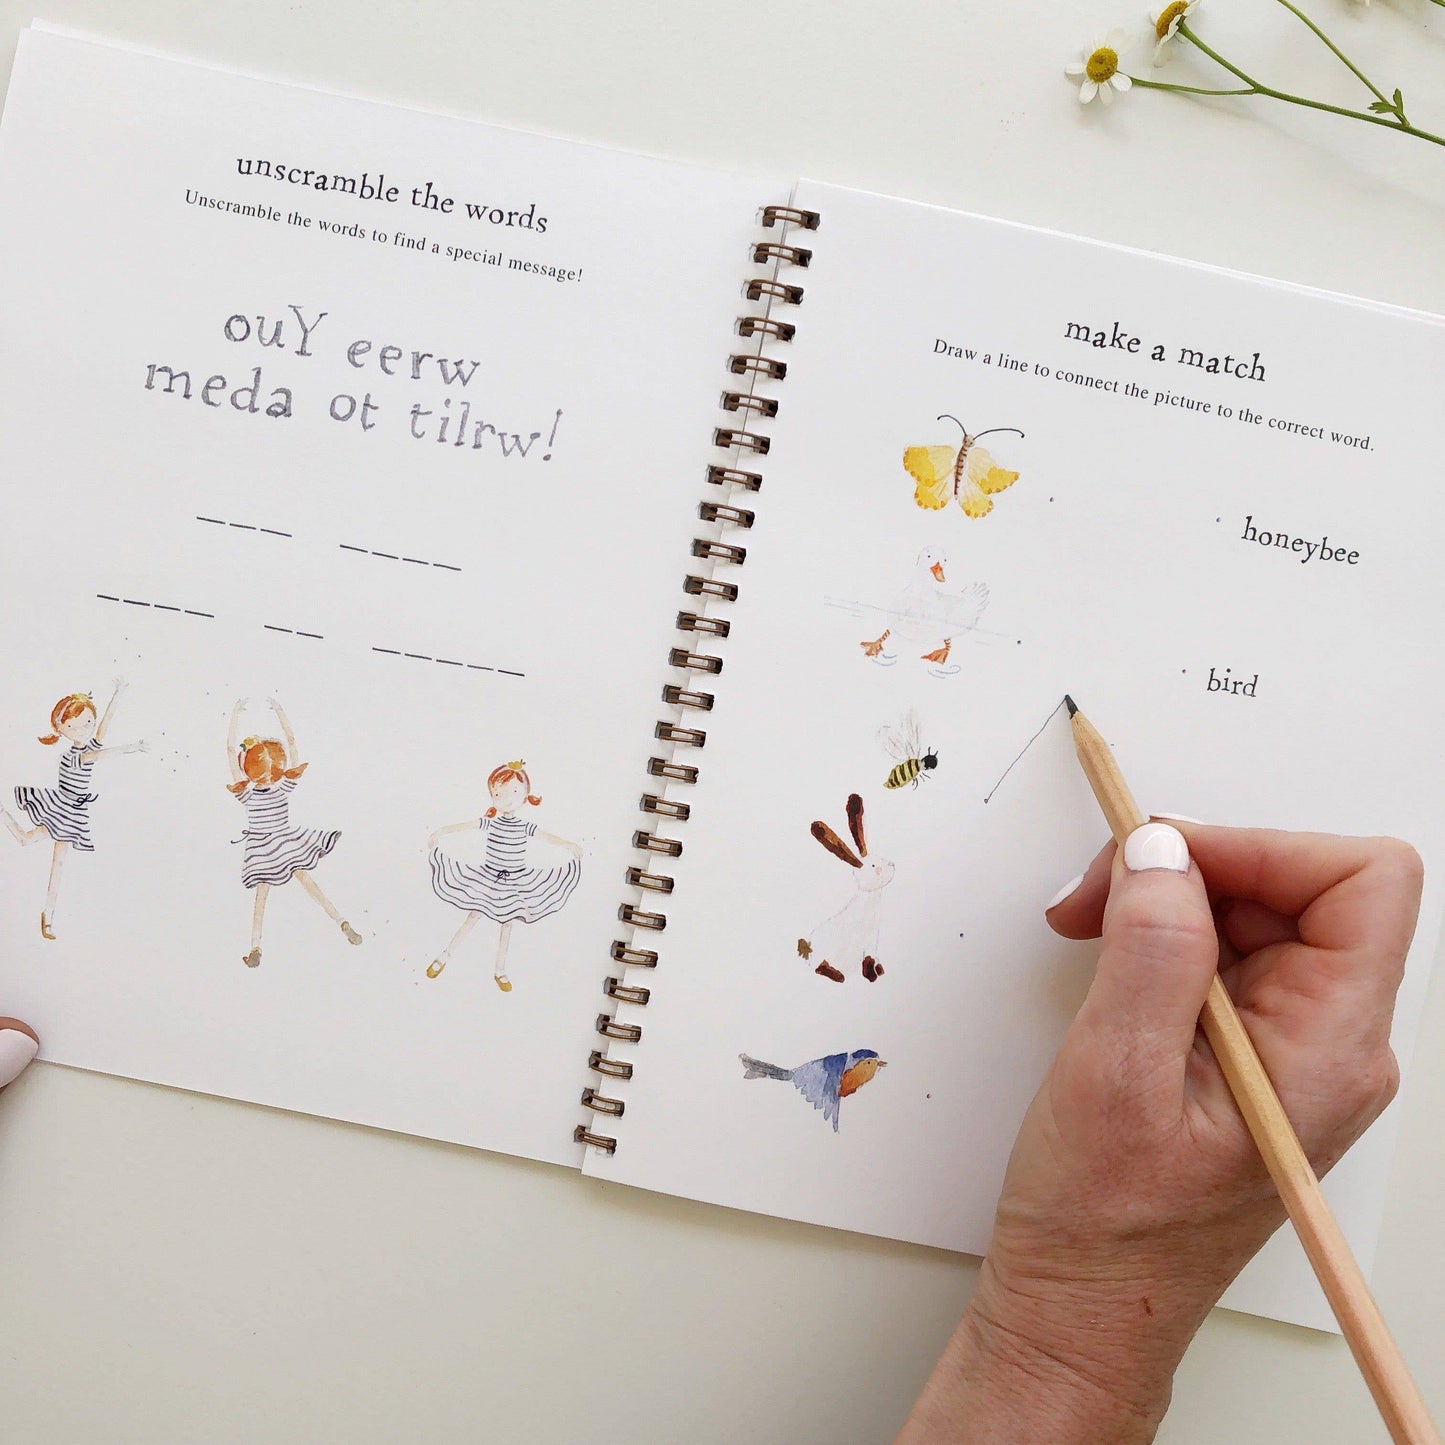 unscramble the words
Unscramble the words to find a special message!
ouY eerw
meda ot tilrw!
make a match
Draw a line to connect the picture to the correct word.
honeybee
bird